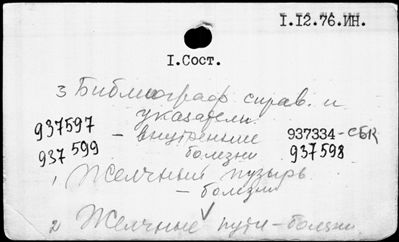 I.12.76.ИН.
I.Сост.
3 Библиограф справ. и
указатели
937597 - внутренние 937334-СБК
937599 болезни 937598
1 Желчный пузырь
- болезни
2 Желчные пути - болезни